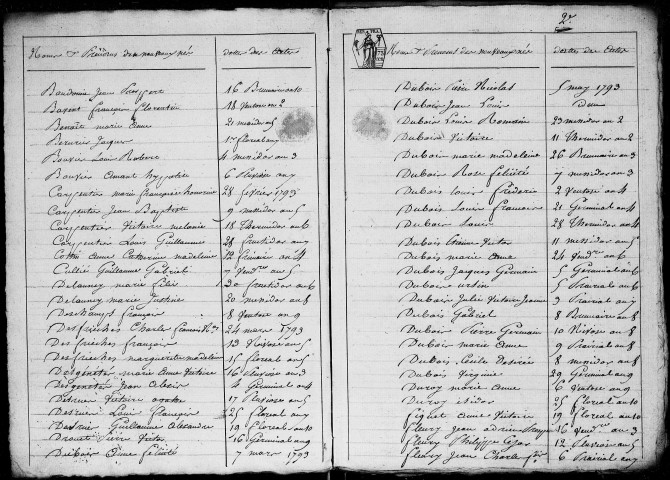 Noms et Prénoms des nouveaux nés dattes des Actes
Baudouin Jean 16 Brumaire an 10
Bazent françois florentin 18 Ventose an 2
Benoît marie anne 21 messidor an 5
Beurier Jaques 1er floreal an 7
Bouxin Louis 4 messidor an 3
Bouxin amant hypolite 6 Nivose an 7
Carpentier marie françoise honorine 28 fevrier 1793
Carpentier Jean Baptiste 9 messidor an 5
Carpentier Victoire melanie 18 Thermidor an 6
Carpentier Louis Guillaume 28 fructidor an 7
Cottin anne Catherine madeleine 12 frimaire an 4
Cullié Guillaume Gabriel 7 Vendre an 5
Delaunay marie 20 fructidor an 6
Delaunay marie Justine 20 messidor an 8
Deschamps françois 8 Ventose an 9
Desfrieches Charles 24 mars 1793
Desfrieches françois 13 Nivose an 5
Desfrieches marguerite madeleine 15 floreal an 5
Desgenétez marie anne Victoire 16 Nivose an 3
Desgenétez Jean alexis 4 Germinal an 4
Destrier Victoire 17 Nivose an 5
Destrier Louis françois 25 floreal an 7
Destrier Guillaume Alexandre 19 floreal an 10
Drouet Pierre Victor 16 Germinal an 9
Dubois anne félicité 7 mars 1793
2e
Noms et Prénoms des nouveaux nés dattes des Actes
Dubois Pierre Nicolas 5 may 1793
Dubois Jean Louis Dud.
Dubois Louis Romain 23 messidor an 2
Dubois Victoire 11 Thermidor an 2
Dubois marie madeleine 26 Brumaire an 3
Dubois Rose félicité 7 messidor an 3
Dubois Louis fréderic 2 Ventose an 4
Dubois Louis françois 21 Germinal an 4
Dubois Louis 28 Thermidor an 4
Dubois Etienne Victor 11 messidor an 5
Dubois marie anne 24 Vendre an 6
Dubois Jacques Germain 5 Germinal an 6
Dubois ursin 5 Prairial an 6
Dubois Julie Victoire Jeanne 3 Prairial an 7
Dubois Gabriel 8 Brumaire an 8
Dubois Pierre Germain 10 Nivose an 8
Dubois marie anne 9 Prairial an 8
Dubois Cecile Desirée 8 messidor an 8
Dubois Virginie 29 Germinal an 9
Duroy marie anne 6 Ventose an 9
Duroy isidor 25 floreal an 10
fiquet anne Victoire 19 floreal an 10
fleury Jean adrien 16 Vendre an 3
fleury Philippe Cezar 12 Nivose an 5
fleury Jean Charles 6 Prairial an 7